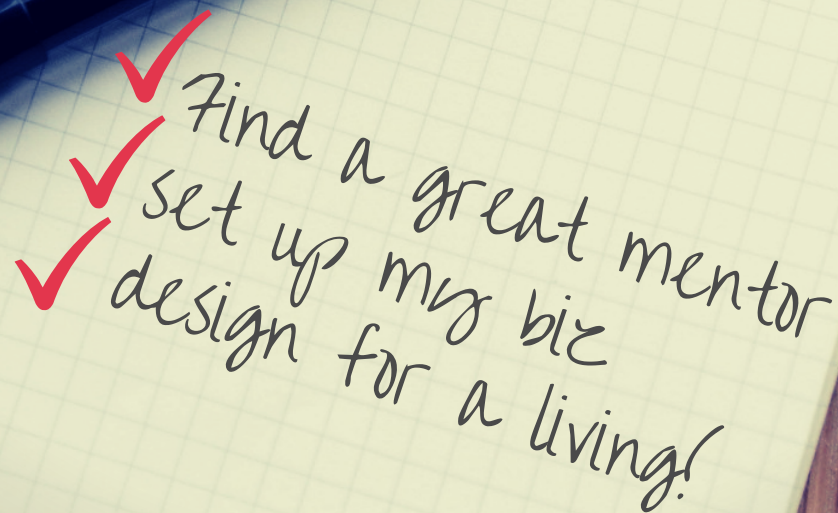 Find a great mentor
set up my biz
design for a living!